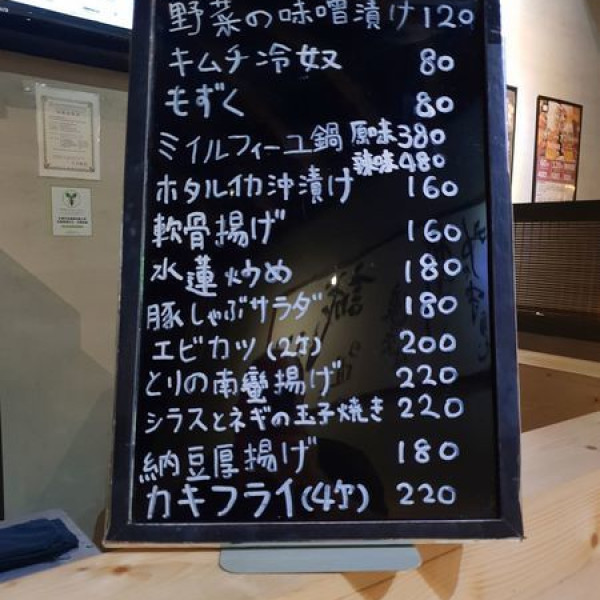 野菜の味噌漬け 120
キムチ冷奴 80
もずく 80
ミイルフィーユ鍋 原味 380
辣味 480
ホタルイカ沖漬け 160
軟骨揚げ 160
水蓮炒め 180
豚しゃぶサラダ 180
エビカツ(2ケ) 200
とりの南蠻揚げ 220
シラスとネギの玉子焼き 220
納豆厚揚げ 180
カキフライ(4ケ) 220